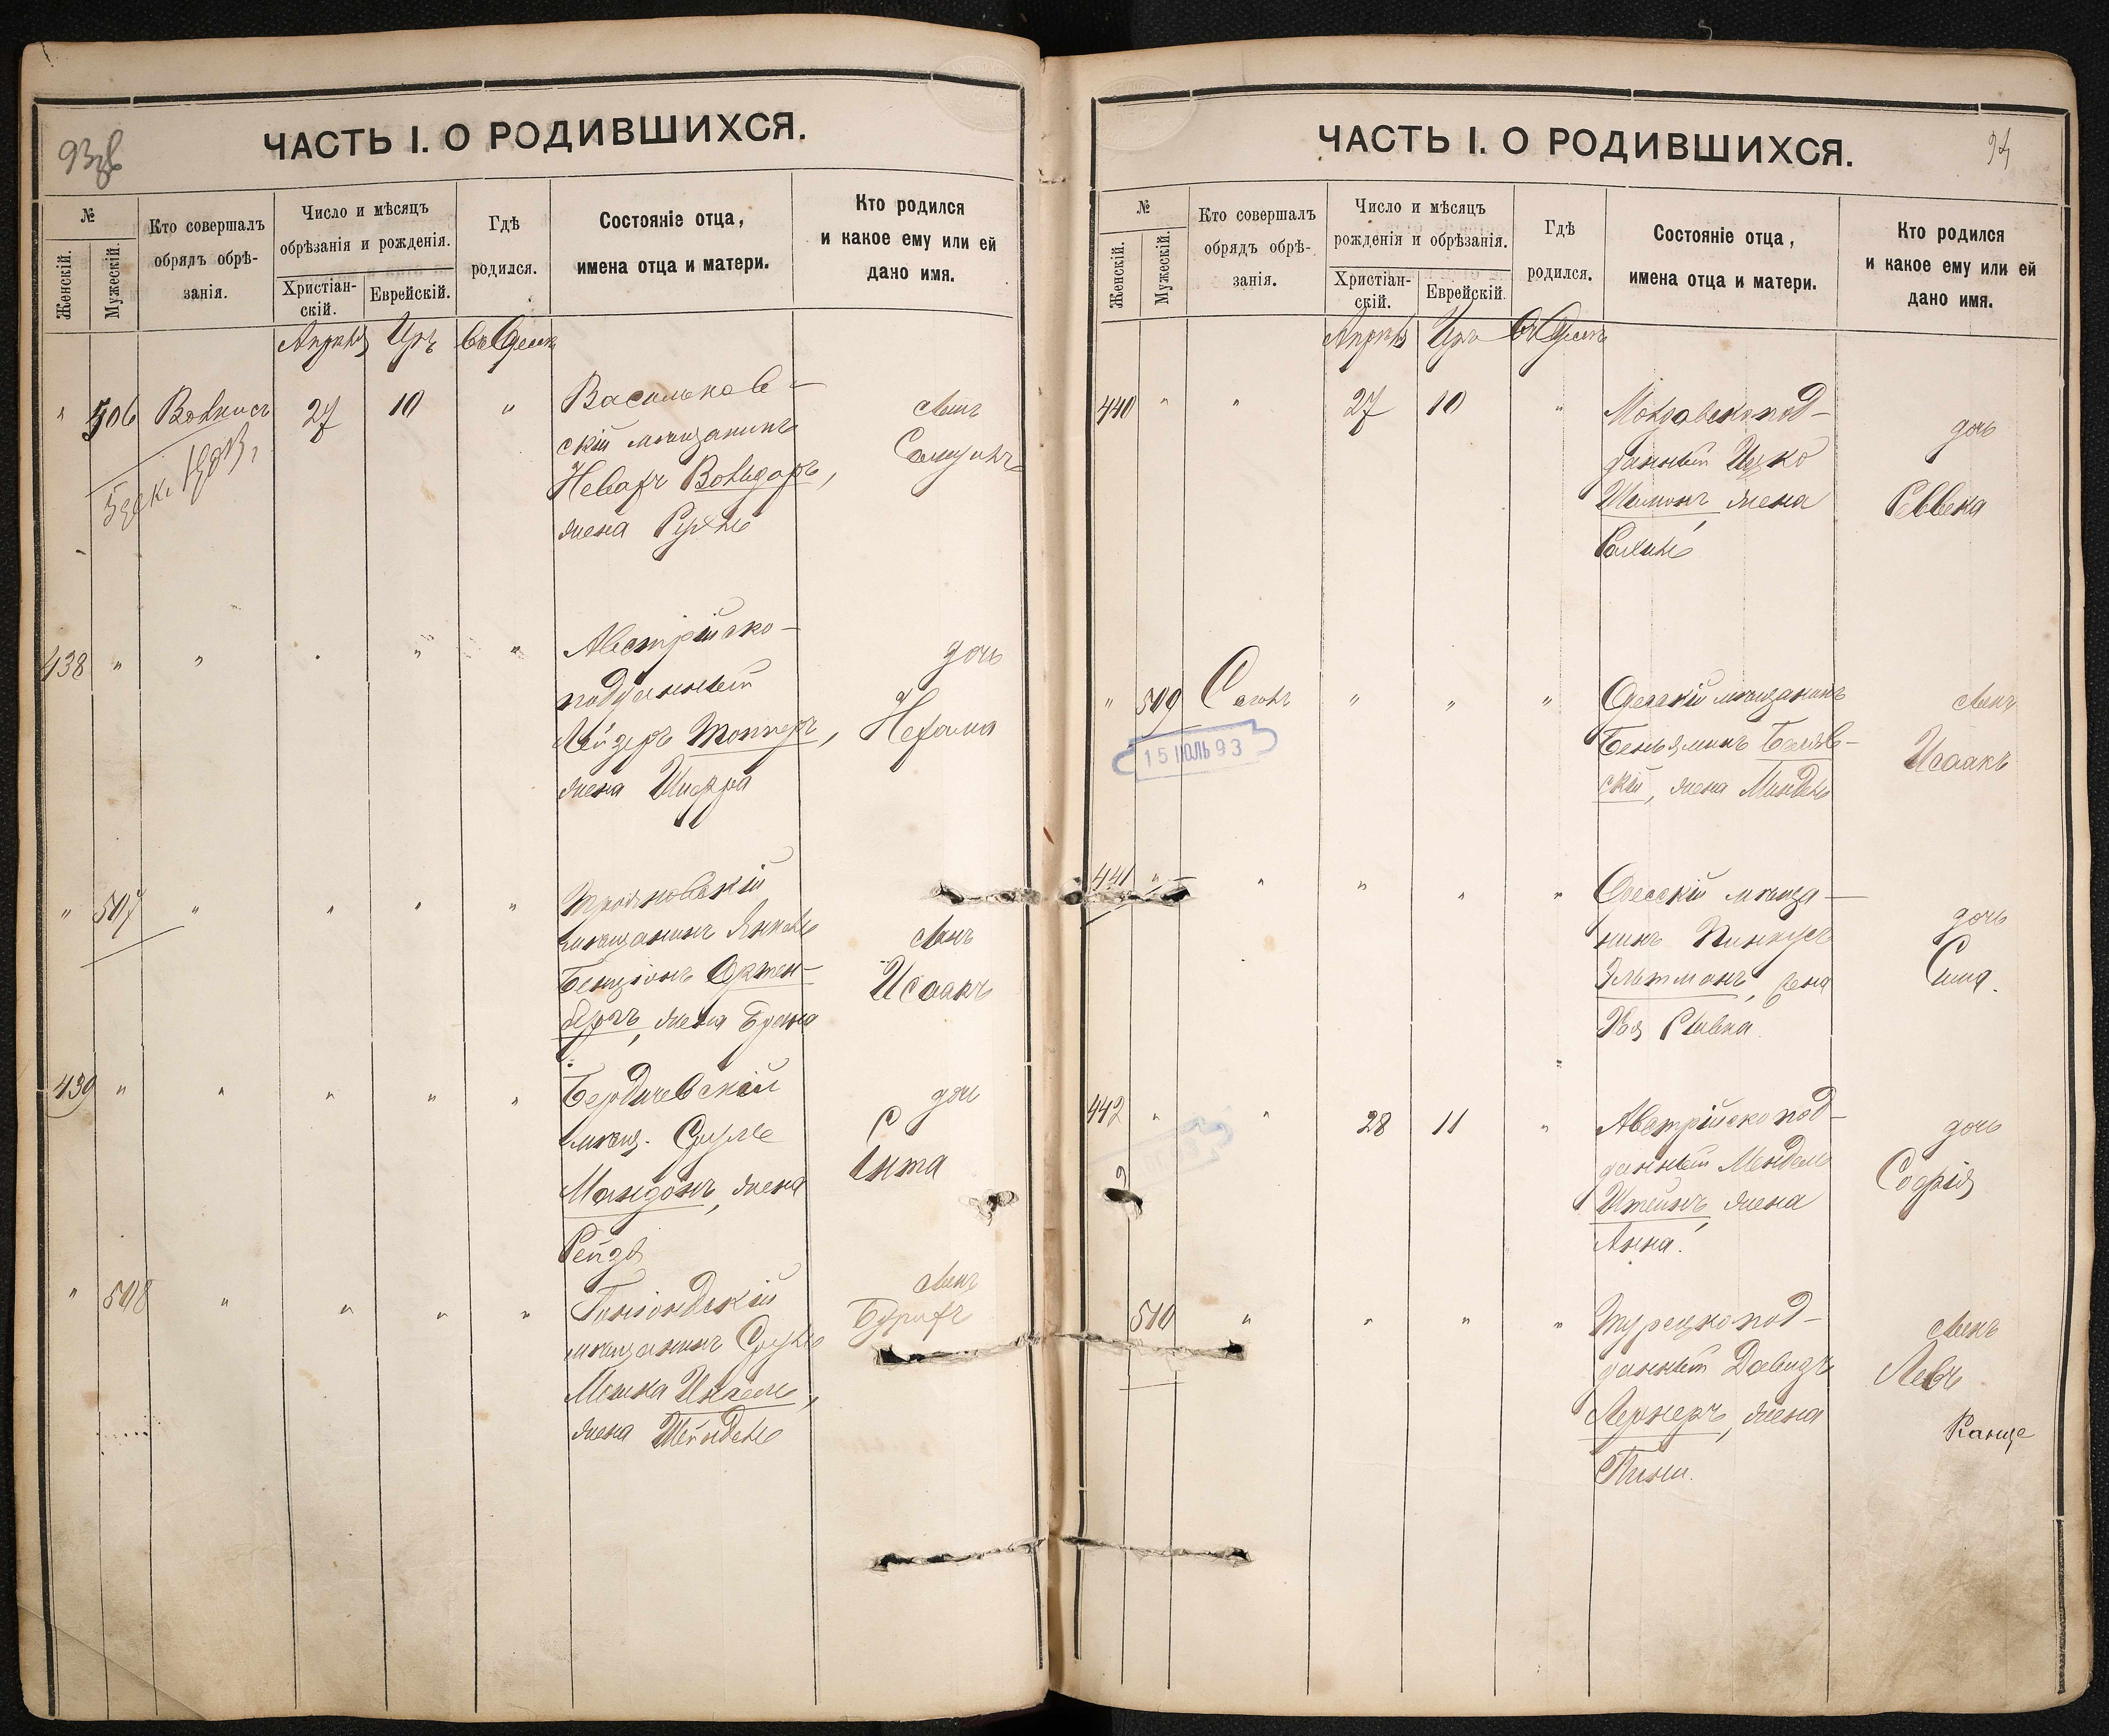 93об
ЧАСТЬ I. О РОДИВШИХСЯ.
№
Женскій.
Мужескій.
Кто совершалъ
обрядъ обрѣ-
занія.
Число и мѣсяцъ
обрѣзанія и рожденія.
Христіан-
скій.
Еврейскій.
Гдѣ
родился.
Состояніе отца,
имена отца и матери.
Кто родился
и какое ему или ей
дано имя.
Апрѣля Иръ въ Одессѣ
" 506 27 10 "
Васильков-
скій мѣщанинъ
жена Рухль
сынъ
438 " " " " "
Австрійско-
подданный
Лейзеръ Топперъ,
жена Шифра
дочь
Нехама
" 507 " " " "
мѣщанинъ Янкель
Бенціонъ Ортен-
бергъ, жена Брана
сынъ
Исаакъ
439 " " " " "
Бердичевскій
мѣщ. Сруль
Мандонъ, жена
Рейзя
дочь
" 508 " " " "
Гоніондскій
мѣщанинъ Сруль
жена Шейндель
сынъ
94
ЧАСТЬ I. О РОДИВШИХСЯ.
№
Женскій.
Мужескій.
Кто совершалъ
обрядъ обрѣ-
занія.
Число и мѣсяцъ
рожденія и обрѣзанія.
Христіан-
скій.
Еврейскій.
Гдѣ
родился.
Состояніе отца,
имена отца и матери.
Кто родился
и какое ему или ей
дано имя.
Апрѣля Иръ въ Одессѣ
440 " " 27 10 "
данный Ицко
Шимонъ жена
Рахиль
дочь
Реввека
" 509 " " "
15 ІЮЛЬ 93
Одесскій мѣщанинъ
Беньяминъ Беляв-
скій, жена Миндель
сынъ
Исаакъ
441 " " " " "
Одесскій мѣща-
нинъ Пинкусъ
Эльтманъ, жена
Хая Ривка.
дочь
Сима.
442 " " 28 11 "
Австрійскопод-
данный Мендель
Штейнъ жена
Анна.
дочь
Софія
510 " " " "
Турецкопод-
данный Давидъ
Лернеръ, жена
сынъ
Левъ